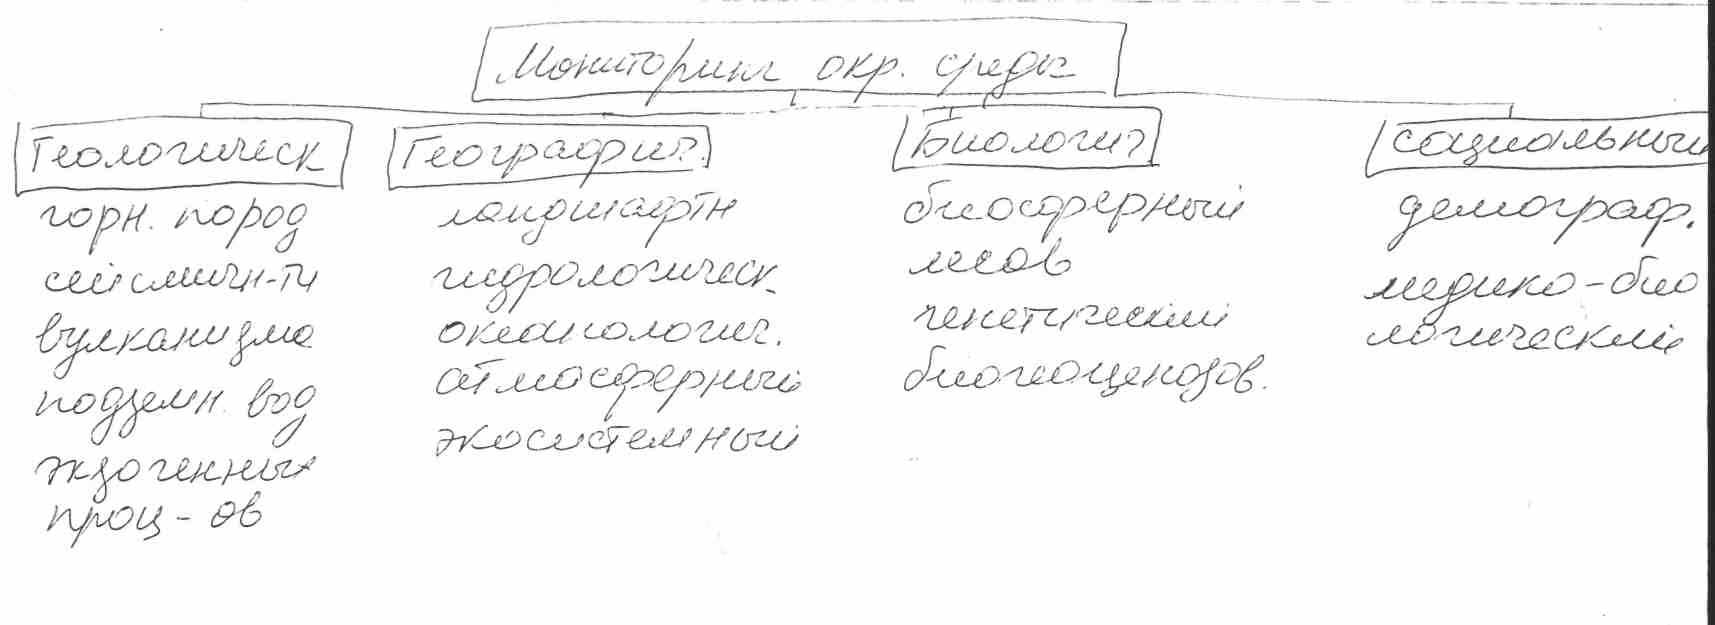 Мониторинг окр. среды
Геологическ
горн. пород
сейсмичн-ти
вулканизма
подземн. вод
экзогенных
проц-ов
Географич.
ландшафтн
гидрологическ
океанологич.
атмосферный
экосистемный
Биологич
биосферный
лесов
генетический
биогеоценозов.
социальный
демограф.
медико-био
логический